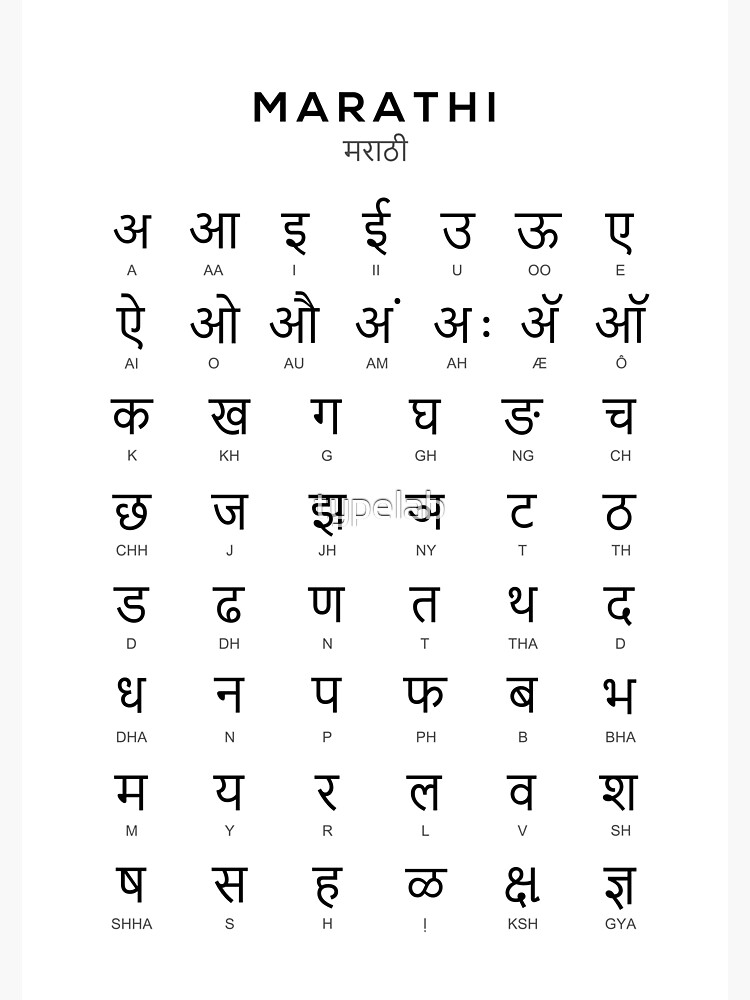 MARATHI
मराठी
अ आ इ ई उ ऊ ए
A AA I II U OO E
ऐ ओ औ अं अः ॲ ऑ
AI O AU AM AH Æ Ô
क ख ग घ ङ च
K KH G GH NG CH
छ ज झ ञ ट ठ
typelab
CHH J JH NY T TH
ड ढ ण त थ द
D DH N T THA D
ध न प फ ब भ
DHA N P PH B BHA
म य र ल व श
M Y R L V SH
ष स ह ळ क्ष ज्ञ
SHHA S H Ḷ KSH GYA